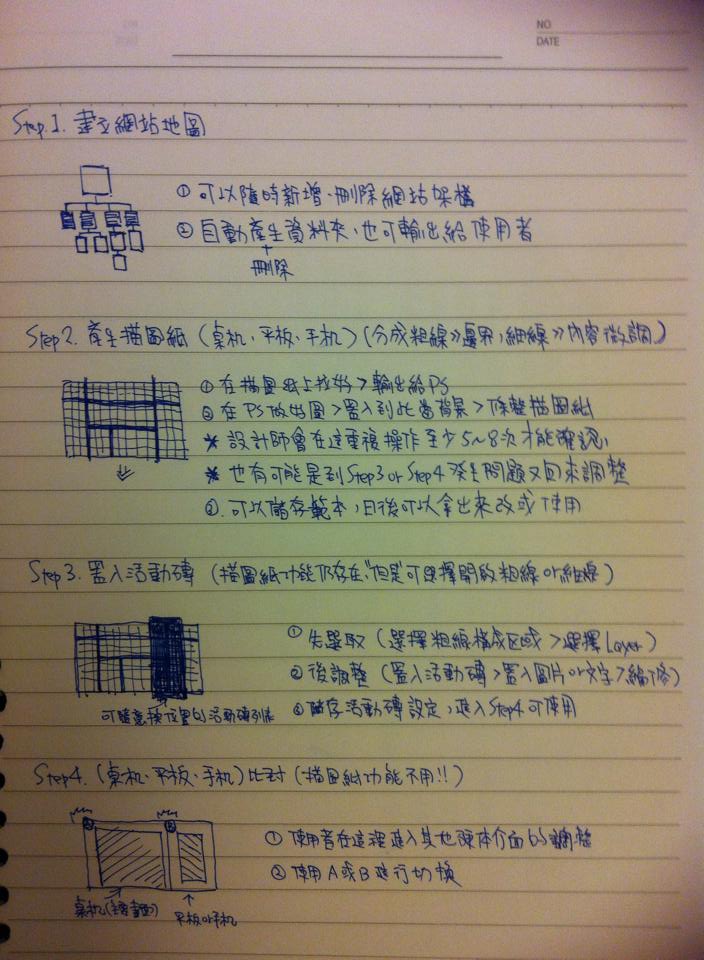 NO.
DATE
Step.1. 建立網站地圖
① 可以隨時新增、刪除網站架構
② 自動產生資料夾、也可輸出給使用者
+
刪除
Step2. 產生描圖紙 (桌机、平板、手机) (分成粗線》邊界,細線》內容微調)
① 在描圖紙上拉好>輸出給PS
② 在PS做好圖>置入到此當背景>修整描圖紙
* 設計師會在這重複操作至少5~8次才能確認,
* 也有可能是到Step3 or Step4 發生問題又回來調整
③. 可以儲存範本,日後可以拿出來改或使用
Step 3. 置入活動磚 (描圖紙功能仍存在,"但是"可選擇開啟粗線or細線)
① 先選取 (選擇粗線構成区域>選擇Layer)
② 後調整 (置入活動磚>置入圖片or文字>編修)
③ 儲存活動磚設定,進入Step4可使用
可隨意換位置的活動磚列表
Step4. (桌机、平板、手机) 比对 (描圖紙功能不用!!)
A B
① 使用者在這裡進入其他硬体介面的調整
② 使用A或B進行切換
桌机(主畫面)
平板or手机